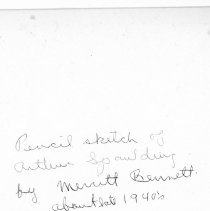 Pencil sketch of
Arthur Spaulding
by Merritt Bennett.
about 1940's